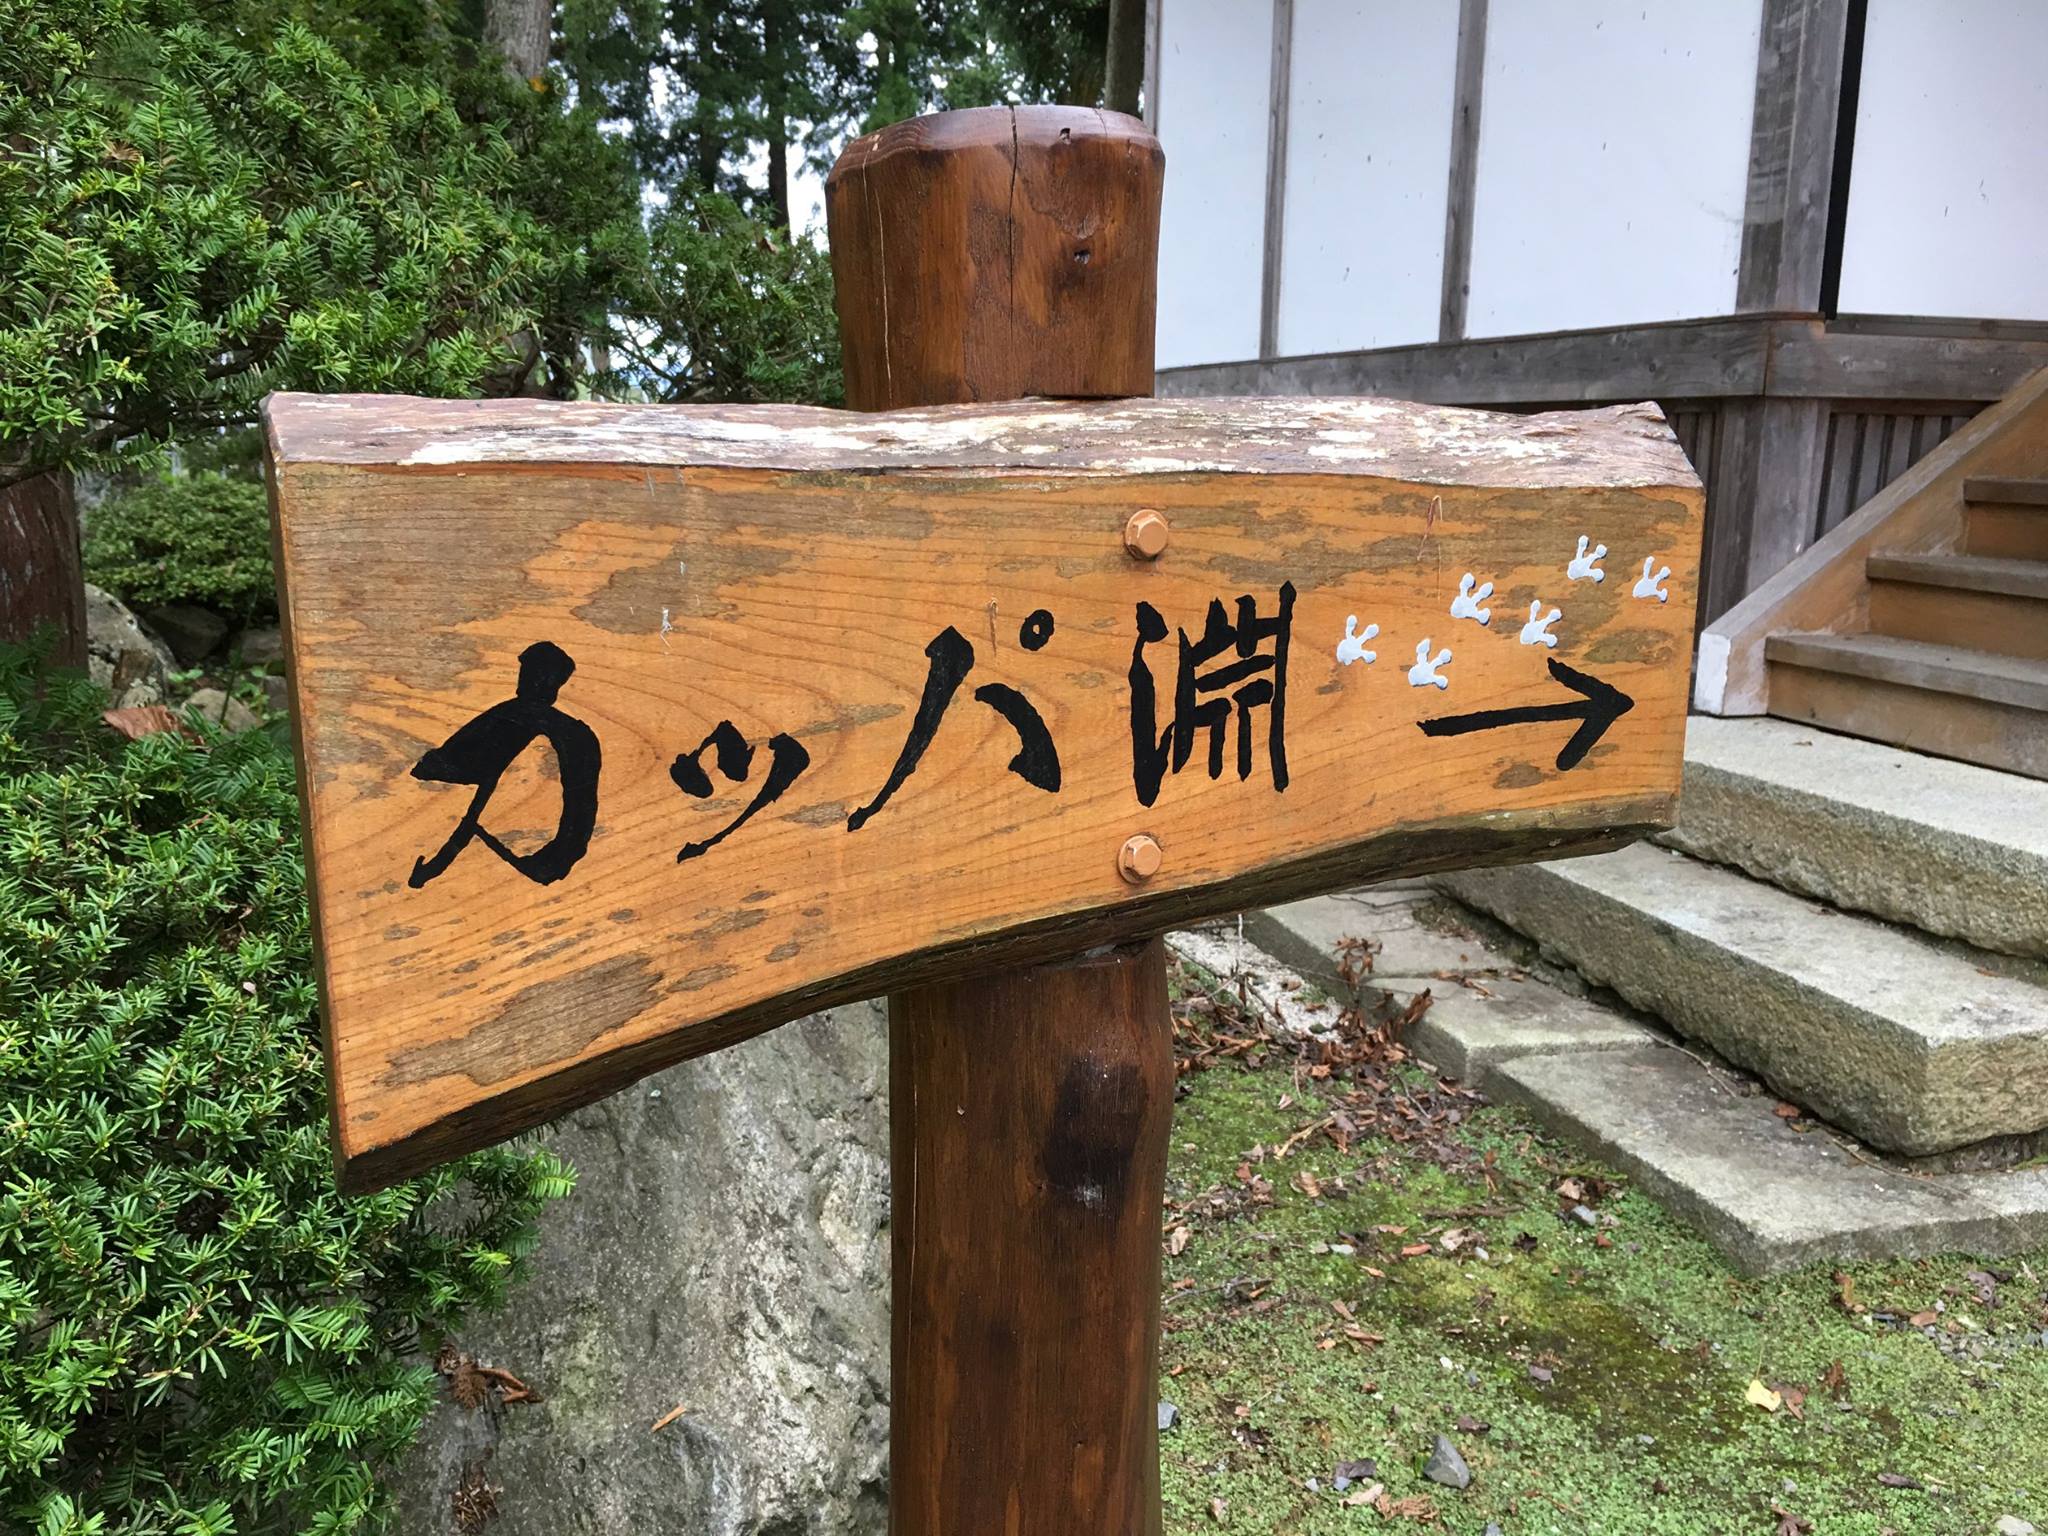 カッパ淵 →